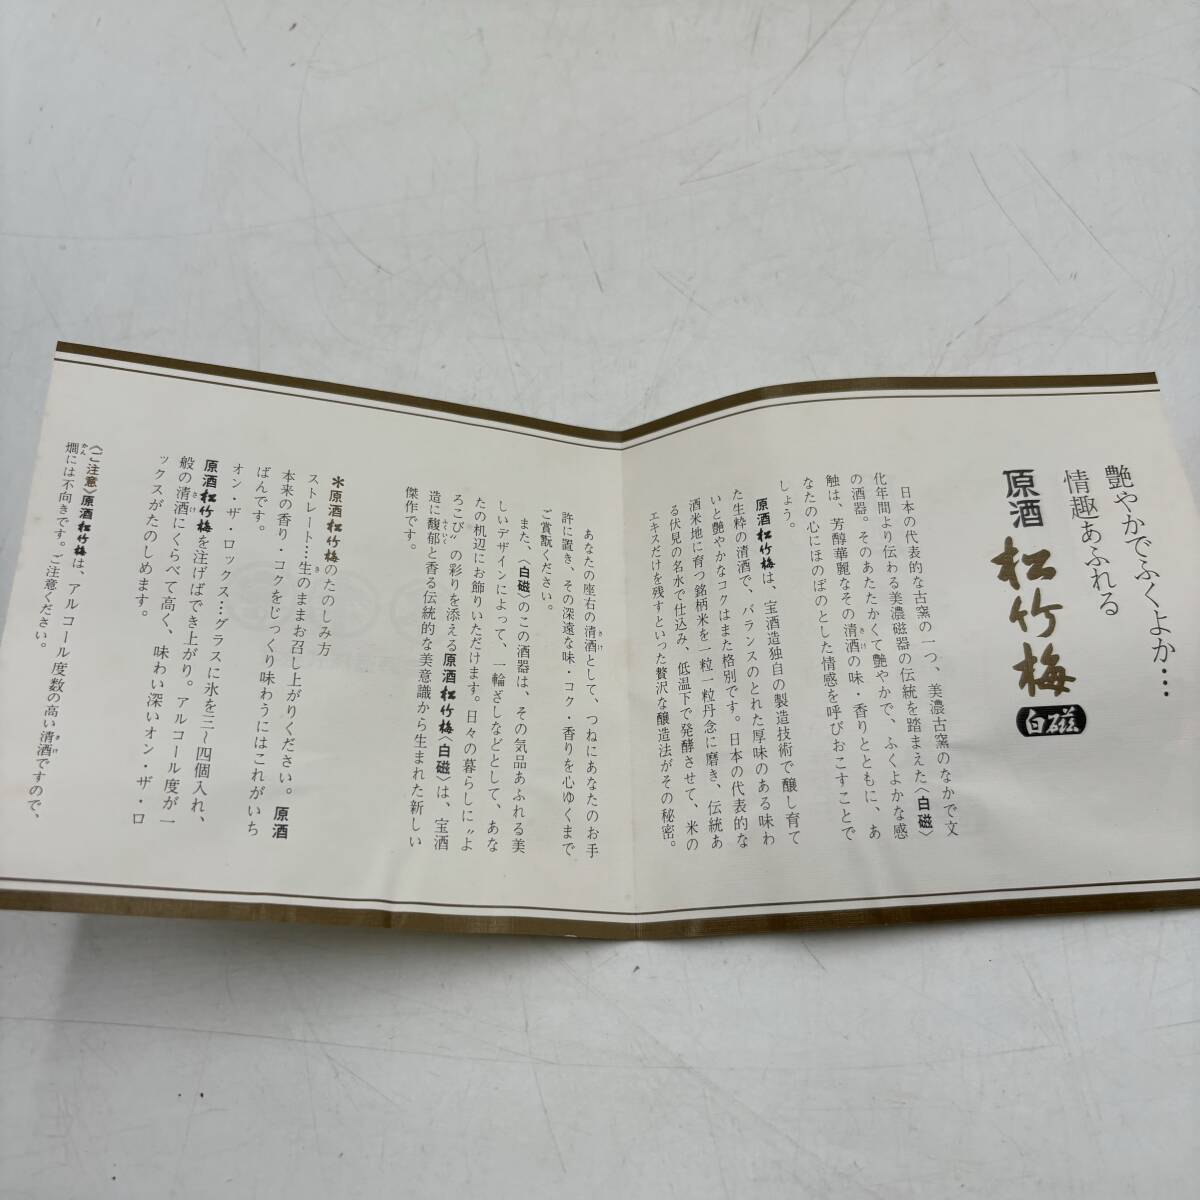 艶やかでふくよか…
情趣あふれる
原酒 松竹梅 白磁
日本の代表的な古窯の一つ、美濃古窯のなかで文
化年間より伝わる美濃磁器の伝統を踏まえた〈白磁〉
の酒器。そのあたたかくて艶やかで、ふくよかな感
触は、芳醇華麗なその清酒の味・香りとともに、あ
なたの心にほのぼのとした情感を呼びおこすことで
しょう。
原酒松竹梅は、宝酒造独自の製造技術で醸し育て
た生粋の清酒で、バランスのとれた厚味のある味わ
いと艶やかなコクはまた格別です。日本の代表的な
酒米地に育つ銘柄米を一粒一粒丹念に磨き、伝統あ
る伏見の名水で仕込み、低温下で発酵させて、米の
エキスだけを残すといった贅沢な醸造法がその秘密。
あなたの座右の清酒として、つねにあなたのお手
許に置き、その深遠な味・コク・香りを心ゆくまで
ご賞翫ください。
また、〈白磁〉のこの酒器は、その気品あふれる美
しいデザインによって、一輪ざしなどとして、あな
たの机辺にお飾りいただけます。日々の暮らしに〝よ
ろこび〟の彩りを添える原酒松竹梅〈白磁〉は、宝酒
造に馥郁と香る伝統的な美意識から生まれた新しい
傑作です。
＊原酒松竹梅のたのしみ方
ストレート…生のままお召し上がりください。原酒
本来の香り・コクをじっくり味わうにはこれがいち
ばんです。
オン・ザ・ロックス…グラスに氷を三〜四個入れ、
原酒松竹梅を注げばでき上がり。アルコール度が一
般の清酒にくらべて高く、味わい深いオン・ザ・ロ
ックスがたのしめます。
〈ご注意〉原酒松竹梅は、アルコール度数の高い清酒ですので、
燗には不向きです。ご注意ください。